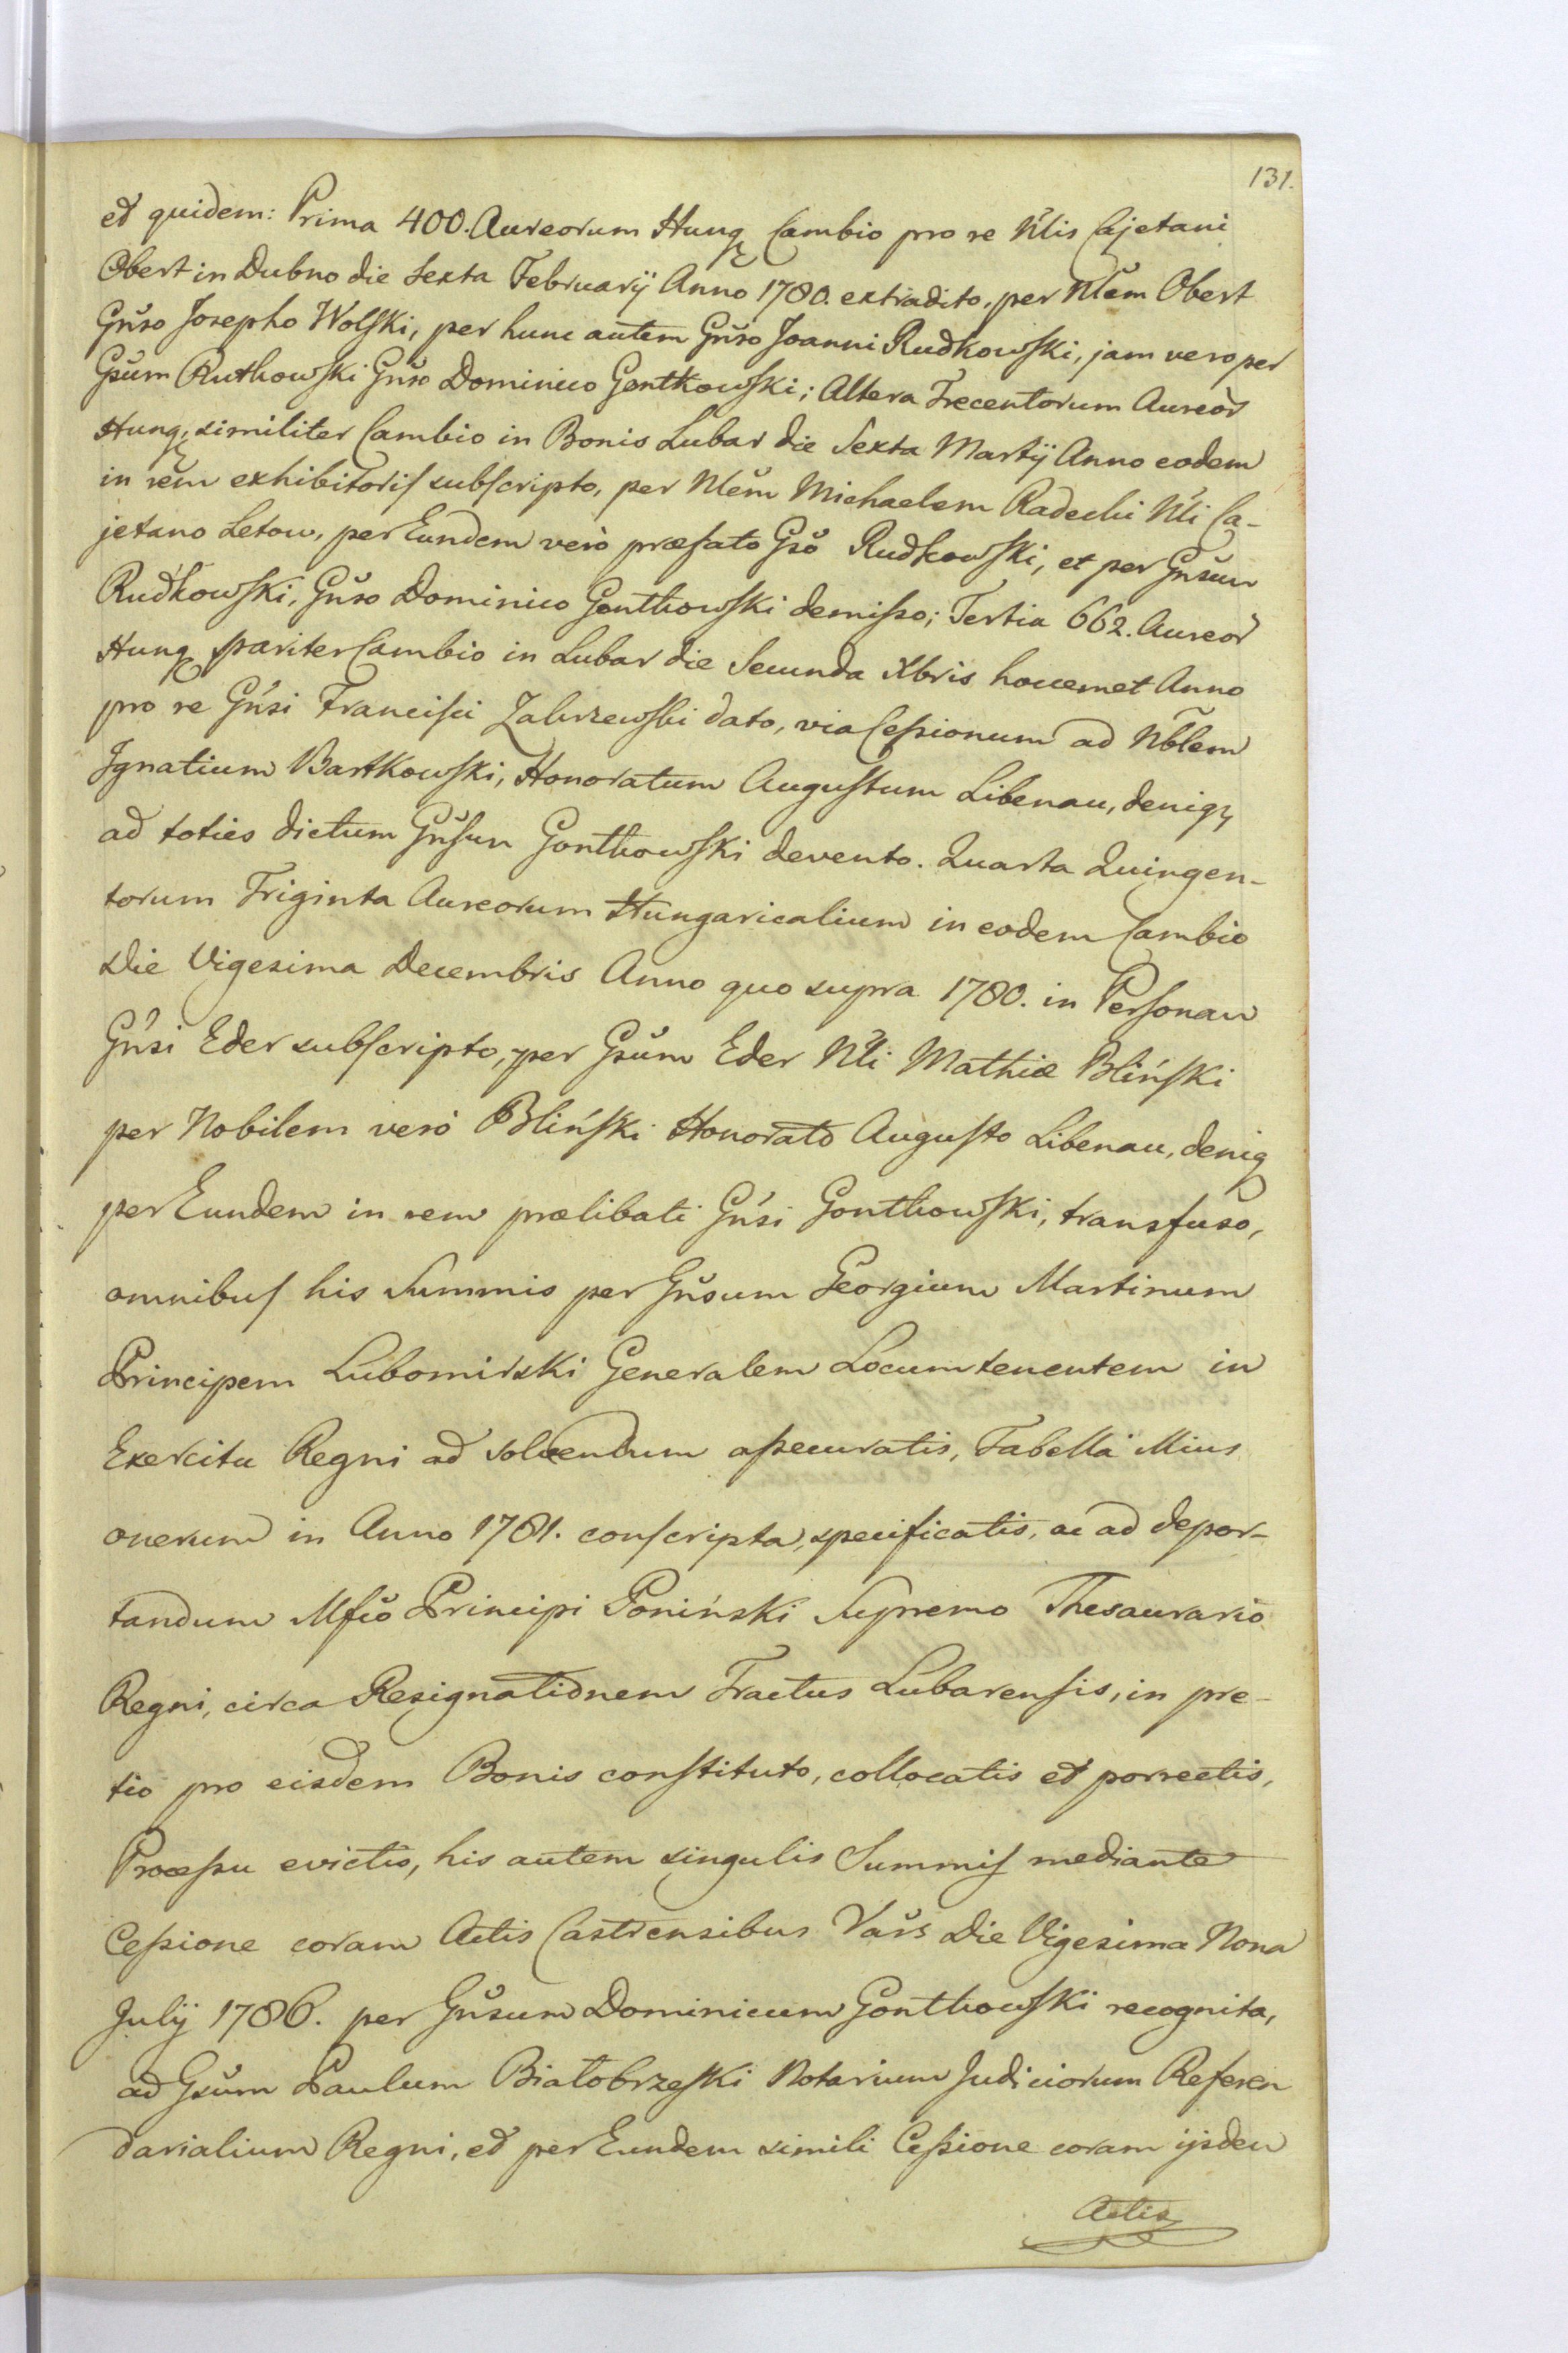 131.
et quidem: Prima 400. Aureorum Hung. Cambio pro re Nlis Cajetani
Obert in Dubno die Sexta Februarij Anno 1780. extradito, per Nlem Obert
Gnso Josepho Wolski, per hunc autem Gnso Joanni Rudkowski, jam vero per
Gsum Rutkowski Gnso Dominico Gontkowski; Altera Trecentorum Aureor
Hung. similiter Cambio in Bonis Lubar die Sexta Martij Anno eodem
in rem exhibitoris subscripto, per Nlem Michaelem Radecki Nli Ca-
jetano Letow, per Eundem verò præfato Gso Rudkowski, et per Gnsum
Rudkowski, Gnso Dominico Gontkowski demisso; Tertia 662. Aureor
Hung. pariter Cambio in Lubar die Secunda Xbris hocemet Anno
pro re Gnsi Francisci Zakrzewski dato, via Cessionum ad Nblem
Ignatium Bartkowski, Honoratum Augustum Libenau, deniq
ad toties dictum Gnsum Gontkowski devento. Quarta Quingen-
torum Triginta Aureorum Hungaricalium in eodem Cambio
Die Vigesima Decembris Anno quo supra 1780. in Personam
Gnsi Eder subscripto, per Gsum Eder Nli Mathiæ Bliński
per Nobilem verò Bliński Honorato Augusto Libenau, deniq
per Eundem in rem prælibati Gnsi Gontkowski, transfuso,
omnibus his Summis per Gnsum Georgium Martinum
Principem Lubomirski Generalem Locumtenentem in
Exercitu Regni ad solvendum assecuratis, Tabella
onerum in Anno 1781. conscripta, specificatis, ac ad depor-
tandum Mfco Principi Poniński Supremo Thesaurario
Regni, circa Resignationem Tractus Lubarensis, in pre-
tio pro eisdem Bonis constituto, collocatis et porrectis,
Processu evictis, his autem singulis Summis mediante
Cessione coram Actis Castrensibus Vars Die Vigesima Nona
Julij 1786. per Gnsum Dominicum Gontkowski recognita,
ad Gsum Paulum Białobrzeski Notarium Judiciorum Referen
darialium Regni, et per Eundem simili Cessione coram ijsdem
Actis